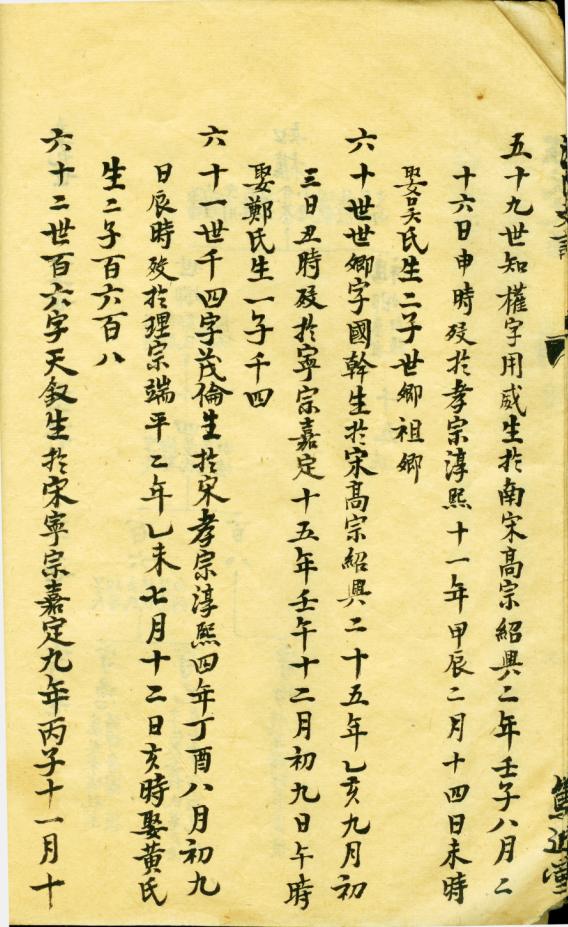 五十九世知權字用威生於南宋高宗紹興二年壬子八月二
十六日申時歿於孝宗淳熙十一年甲辰二月十四日未時
娶吴氏生二子世卿祖卿
六十世世卿字國幹生於宋高宗紹興二十五年乙亥九月初
三日丑時歿於寧宗嘉定十五年壬午十二月初九日午時
娶鄭氏生一子千四
六十一世千四字茂倫生於宋孝宗淳熙四年丁酉八月初九
日辰時歿於理宗端平二年乙未七月十二日亥時娶黃氏
生二子百六百八
六十二世百六字天叙生於宋寧宗嘉定九年丙子十一月十